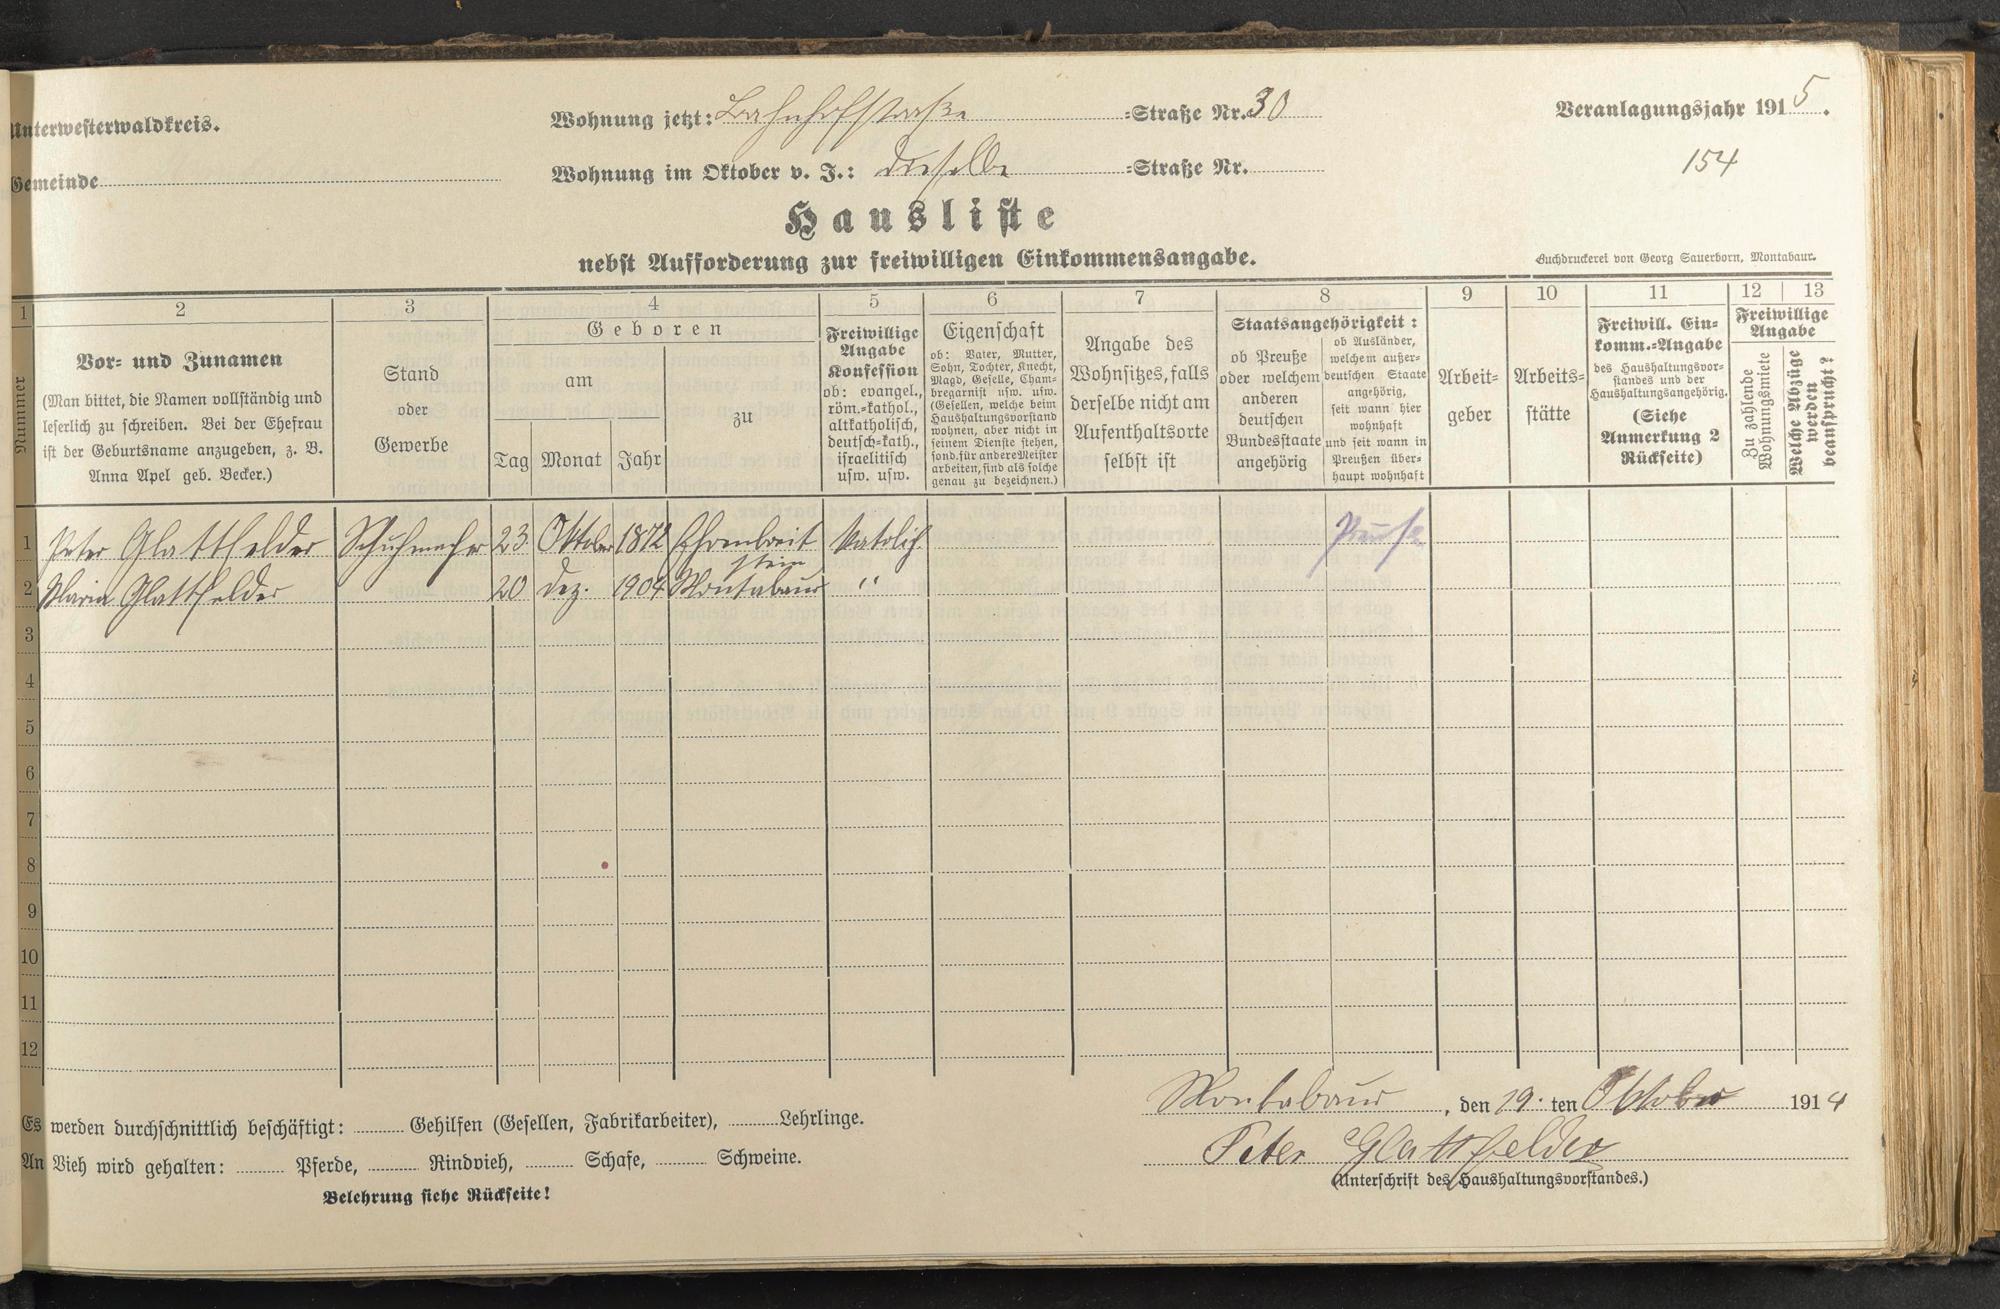 Unterwesterwaldkreis.
Wohnung jetzt: Bahnhofstraße =Straße Nr. 30
Veranlagungsjahr 1915.
Gemeinde
Wohnung im Oktober v. J.: dieselbe =Straße Nr.
154
Hausliste
nebst Aufforderung zur freiwilligen Einkommensangabe.
Buchdruckerei von Georg Sauerborn, Montabaur.
1
Nummer
2
Vor- und Zunamen
(Man bittet, die Namen vollständig und
leserlich zu schreiben. Bei der Ehefrau
ist der Geburtsname anzugeben, z. B.
Anna Apel geb. Becker.)
3
Stand
oder
Gewerbe
4
Geboren
am
Tag Monat Jahr
zu
5
Freiwillige
Angabe
Konfession
ob: evangel.,
röm.=kathol.,
altkatholisch,
deutsch=kath.,
israelitisch
usw. usw.
6
Eigenschaft
ob: Vater, Mutter,
Sohn, Tochter, Knecht,
Magd, Geselle, Cham-
bregarnist usw. usw.
(Gesellen, welche beim
Haushaltungsvorstand
wohnen, aber nicht in
seinem Dienste stehen,
sond. für andere Meister
arbeiten, sind als solche
genau zu bezeichnen.)
7
Angabe des
Wohnsitzes, falls
derselbe nicht am
Aufenthaltsorte
selbst ist
8
Staatsangehörigkeit:
ob Preuße
oder welchem
anderen
deutschen
Bundesstaate
angehörig
ob Ausländer,
welchem außer-
deutschen Staate
angehörig,
seit wann hier
wohnhaft
und seit wann in
Preußen über-
haupt wohnhaft
9
Arbeit-
geber
10
Arbeits-
stätte
11
Freiwill. Ein-
komm.=Angabe
des Haushaltungsvor-
standes und der
Haushaltungsangehörig.
(Siehe
Anmerkung 2
Rückseite)
12 13
Freiwillige
Angabe
Zu zahlende
Wohnungsmiete
Welche Abzüge
werden
beansprucht?
1 Peter Glattfelder Schuhmacher 23 Oktober 1872 Ehrenbreit
stein Katolich Preuße
2 Maria Glattfelder 20 Dez. 1904 Montabaur "
3
4
5
6
7
8
9
10
11
12
Es werden durchschnittlich beschäftigt: Gehilfen (Gesellen, Fabrikarbeiter), Lehrlinge.
An Vieh wird gehalten: Pferde, Rindvieh, Schafe, Schweine.
Belehrung siehe Rückseite!
Montabaur, den 19. ten Oktober 1914
Peter Glattfelder
(Unterschrift des Haushaltungsvorstandes.)